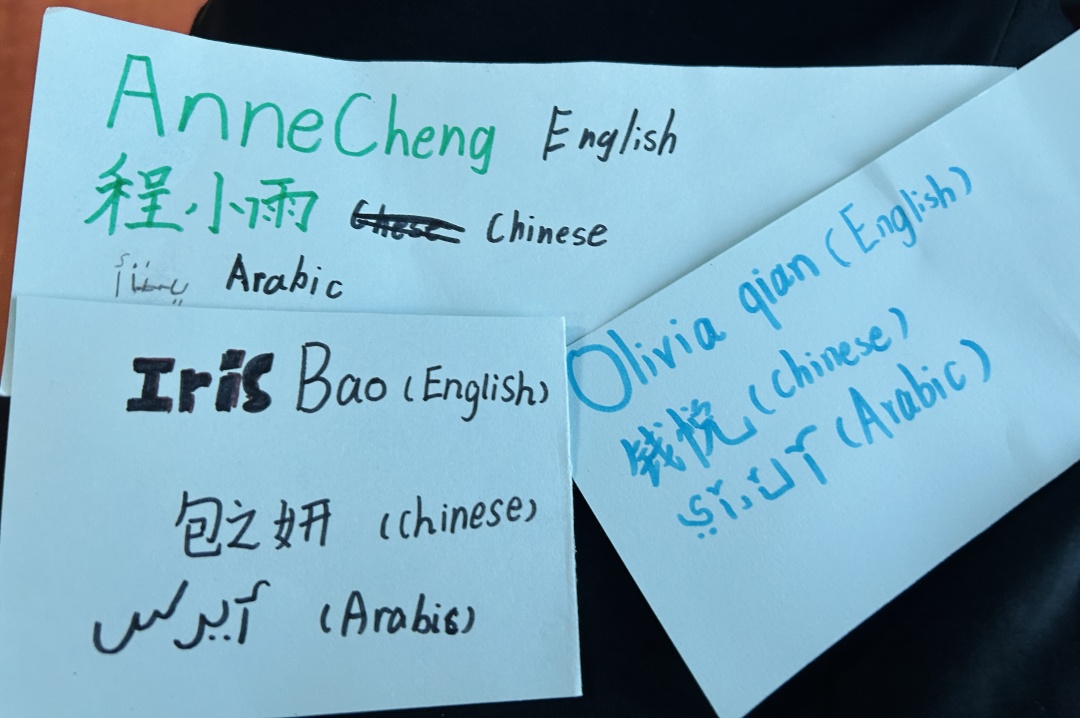 Anne Cheng English
程小雨 Chinese
Arabic
Iris Bao (English)
包之妍 (chinese)
آيرس (Arabic)
Olivia qian (English)
钱悦 (Chinese)
(Arabic)